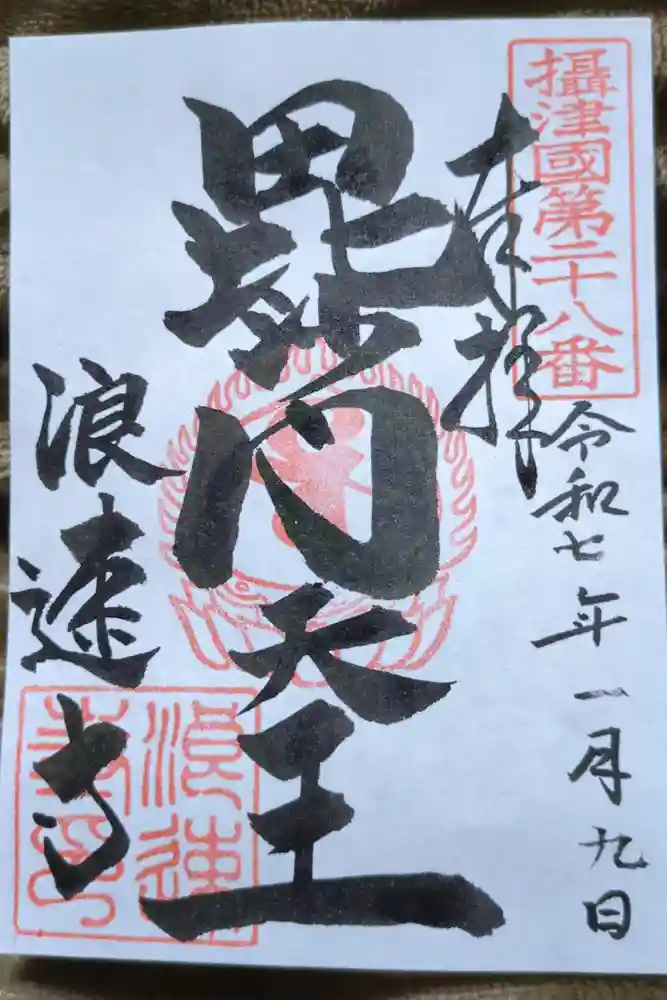 攝津國第二十八番
奉拝
令和七年一月九日
毘沙門天王
浪速寺
浪速
寺印